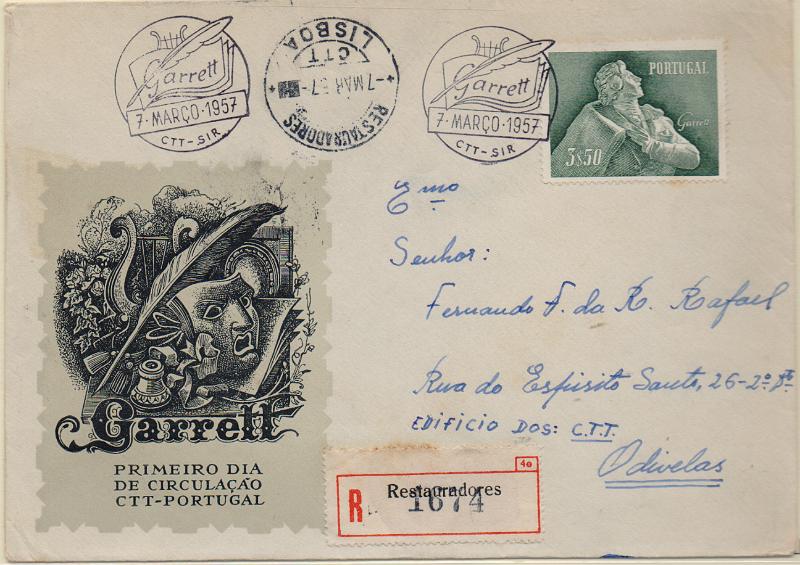 Garrett
7·MARÇO·1957
CTT-SIR
LISBOA
CTT
-7 MAR 57-
RESTAURADORES
Garrett
7·MARÇO·1957
CTT-SIR
PORTUGAL
Garrett
3$50
Emo
Senhor:
Fernando F. da R. Rafael
Rua do Espirito Santo, 26-2º Dto
EDIFICIO DOS: C.T.T.
Odivelas
Garrett
PRIMEIRO DIA
DE CIRCULAÇÃO
CTT-PORTUGAL
4e
R Restauradores
1674